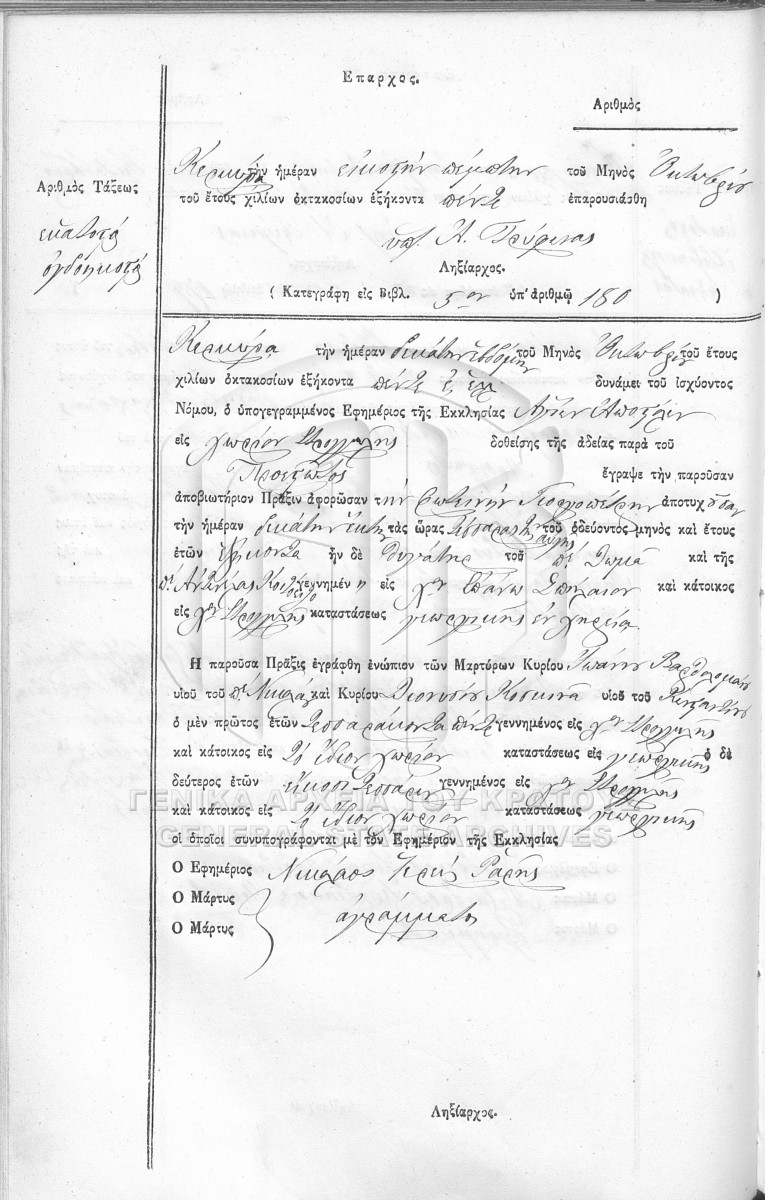 Επαρχος.
Αριθμὸς
Αριθμὸς Τάξεως
ἑκατοστὸ
ὀγδοηκοστὸ
Κερκύρα τὴν ἡμέραν εἰκοστὴν πέμπτην τοῦ Μηνὸς Ὀκτωβρίου
τοῦ ἔτους χιλίων ὀκτακοσίων ἑξήκοντα πέντε ἐπαρουσιάσθη
ὑπ. Α.
Ληξίαρχος.
( Κατεγράφη εἰς Βιβλ. 5ον ὑπ' ἀριθμῷ 180 )
Κερκύρα τὴν ἡμέραν δεκάτην ἑβδόμην τοῦ Μηνὸς Ὀκτωβρίου τοῦ ἔτους
χιλίων ὀκτακοσίων ἑξήκοντα πέντε ἔ. ἑλ. δυνάμει τοῦ ἰσχύοντος
Νόμου, ὁ ὑπογεγραμμένος Εφημέριος τῆς Εκκλησίας Ἁγίων Ἀποστόλων
εἰς χωρίον Στρογγυλῆς δοθείσης τῆς ἀδείας παρὰ τοῦ
Προεστῶτος ἔγραψε τὴν παροῦσαν
ἀποβιωτήριον Πρᾶξιν ἀφορῶσαν τὴν Φωτεινὴν ἀποτυχοῦσαν
τὴν ἡμέραν δεκάτην ἕκτην τὰς ὥρας τέσσαρας τῆς αὐγῆς τοῦ ὁδεύοντος μηνὸς καὶ ἔτους
ἐτῶν ἑξήκοντα ἦν δὲ θυγάτηρ τοῦ πτὲ Θωμᾶ καὶ τῆς
γεννημένη εἰς χον Ἐπάνω Σπήλαιον καὶ κάτοικος
εἰς χον Στρογγυλῆς καταστάσεως γεωργικῆς ἐν χηρείᾳ.
Η παροῦσα Πρᾶξις ἐγράφθη ἐνώπιον τῶν Μαρτύρων Κυρίου Ἰωάννου Βαρθολομαίου
υἱοῦ τοῦ πτὲ Νικολάου καὶ Κυρίου Διονυσίου Κοσκινᾶ υἱοῦ τοῦ Κωνσταντίνου
ὁ μὲν πρῶτος ἐτῶν τεσσαράκοντα πέντε γεννημένος εἰς χον Στρογγυλῆς
καὶ κάτοικος εἰς τὸ ἴδιον χωρίον καταστάσεως εἰς γεωργικῆς ὁ δὲ
δεύτερος ἐτῶν εἴκοσι τεσσάρων γεννημένος εἰς χον Στρογγυλῆς
καὶ κάτοικος εἰς τὸ ἴδιον χωρίον καταστάσεως γεωργικῆς
οἱ ὁποῖοι συνυπογράφονται μὲ τὸν Εφημέριον τῆς Εκκλησίας
Ο Εφημέριος Νικόλαος Ἱερεὺς
Ο Μάρτυς
Ο Μάρτυς ἀγράμματοι
Ληξίαρχος.
ΓΕΝΙΚΑ ΑΡΧΕΙΑ ΤΟΥ ΚΡΑΤΟΥΣ
GENERAL STATE ARCHIVES